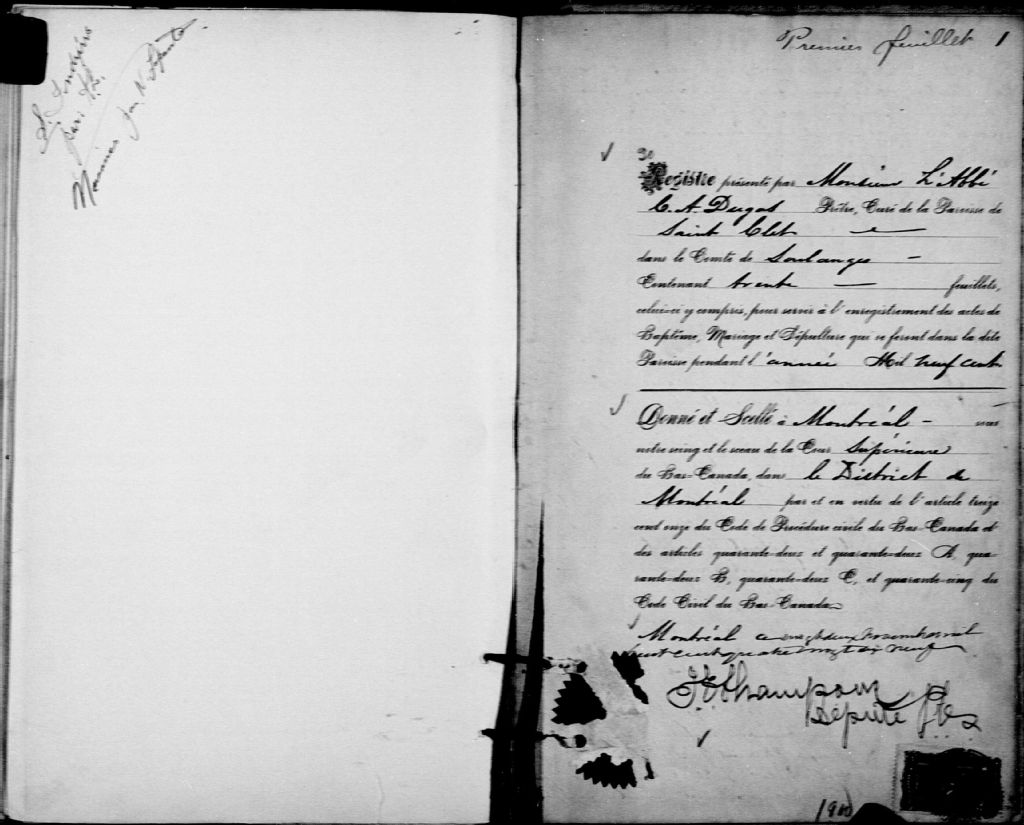 Premier feuillet 1
30
Registre présenté par Monsieur L'Abbé
C. A. Dugas Prêtre, Curé de la Paroisse de
Saint Clet
dans le Comté de Soulanges —
Contenant trente — feuillets,
celui-ci y compris, pour servir à l'enregistrement des actes de
Baptême, Mariage et Sépulture qui se feront dans la dite
Paroisse pendant l'année Mil neuf cent.
Donné et Scellé à Montréal — sous
notre seing et le sceau de la Cour Supérieure
du Bas-Canada, dans le District de
Montréal par et en vertu de l'article treize
cent onze du Code de Procédure civile du Bas-Canada et
des articles quarante-deux et quarante-deux A, qua-
rante-deux B, quarante-deux C, et quarante-cinq du
Code Civil du Bas-Canada.
Montréal ce vingt deux novembre mil
huit cent quatre vingt dix neuf
Député P.C.S.
1900